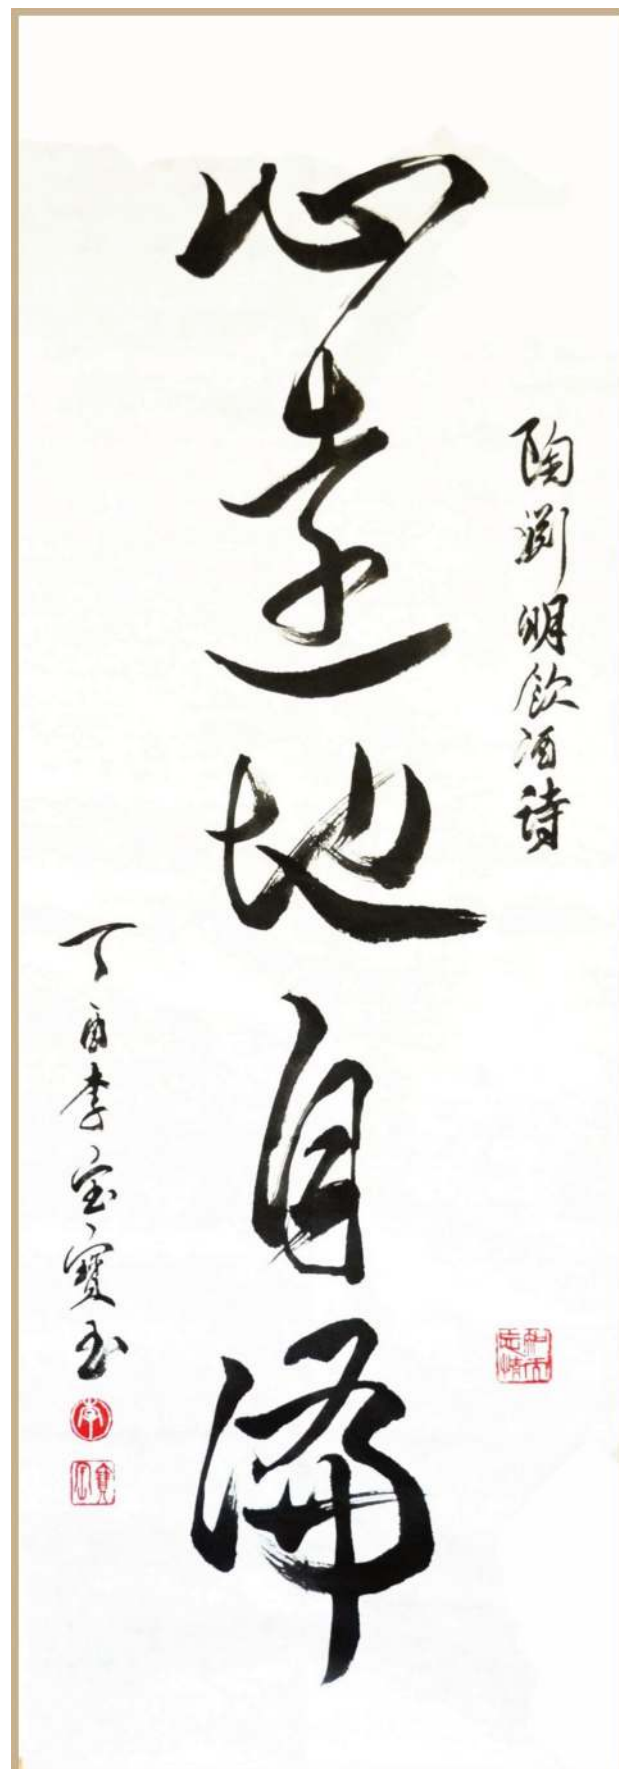 陶渕明飲酒詩
心遠地自偏
丁酉李寶玉
李